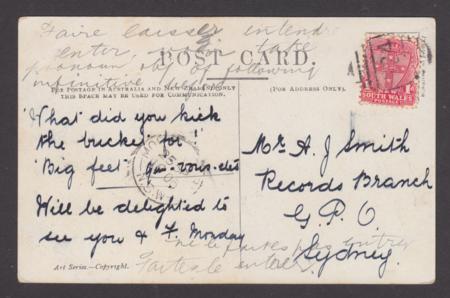 Faire laisser
enter, voir
POST CARD.
pronoun obj of following
infinitive
FOR POSTAGE IN AUSTRALIA AND NEW ZEALAND ONLY
THIS SPACE MAY BE USED FOR COMMUNICATION.
(FOR ADDRESS ONLY).
What did you kick
the bucket for!
"Big feet" qu-vous-dites
Will be delighted to
see you & F. Monday
Art Series.—Copyright.
Mr A. J Smith
Records Branch
G. P. O
Sydney.
entrer
entrer
SOUTH WALES
POSTAGE